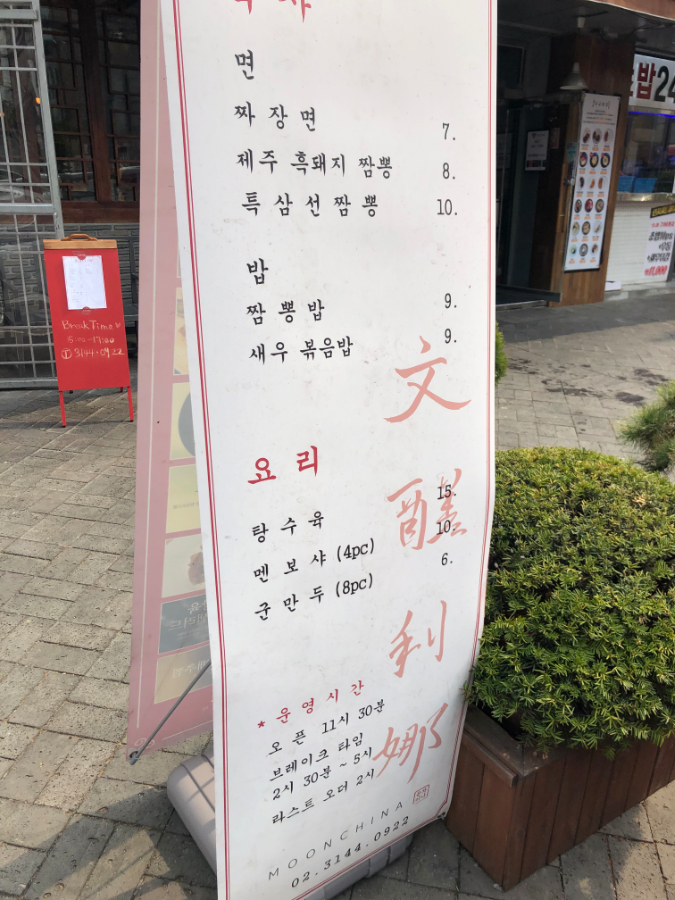 식사
면
짜장면 7.
제주 흑돼지 짬뽕 8.
특삼선짬뽕 10.
밥
짬뽕밥 9.
새우 볶음밥 9.
요리
탕수육 15.
멘보샤 (4pc) 10.
군만두 (8pc) 6.
* 운영시간
오픈 11시 30분
브레이크 타임
2시 30분 ~ 5시
라스트 오더 2시
MOONCHINA
02.3144.0922
文
醒
利
娜
Break Time
3144-0922
밥24